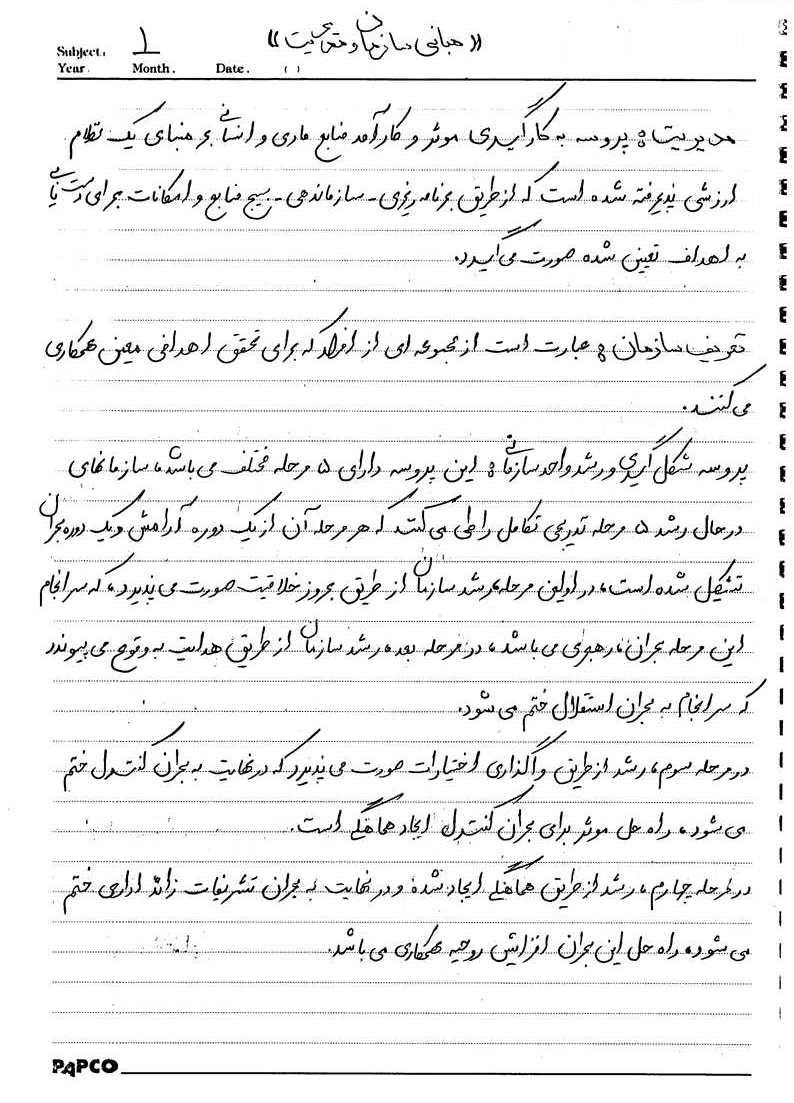 «مبانی سازمان و مدیریت»
Subject: 1
Year. Month. Date. ( )
مدیریت: پروسه به کارگیری موثر و کارآمد منابع مادی و انسانی بر مبنای یک نظام
ارزشی پذیرفته شده است که از طریق برنامه ریزی - سازماندهی - بسیج منابع و امکانات برای دست یابی
به اهداف تعیین شده صورت می گیرد.
تعریف سازمان: عبارت است از مجموعه ای از افراد که برای تحقق اهدافی معین همکاری
می کنند.
پروسه شکل گیری و رشد واحد سازمانی: این پروسه دارای ۵ مرحله مختلف می باشد، سازمانهای
در حال رشد ۵ مرحله تدریجی تکامل را طی می کنند که هر مرحله آن از یک دوره آرامش و یک دوره بحران
تشکیل شده است، در اولین مرحله، رشد سازمان از طریق بروز خلاقیت صورت می پذیرد، که سرانجام
این مرحله بحران، رهبری می باشد، در مرحله بعد، رشد سازمان از طریق هدایت به وقوع می پیوندد
که سرانجام به بحران استقلال ختم می شود.
در مرحله سوم، رشد از طریق واگذاری اختیارات صورت می پذیرد که در نهایت به بحران کنترل ختم
می شود، راه حل موثر برای بحران کنترل ایجاد هماهنگی است.
در مرحله چهارم، رشد از طریق هماهنگی ایجاد شده و در نهایت به بحران تشریفات زائد اداری ختم
می شود، راه حل این بحران افزایش روحیه همکاری می باشد.
PAPCO